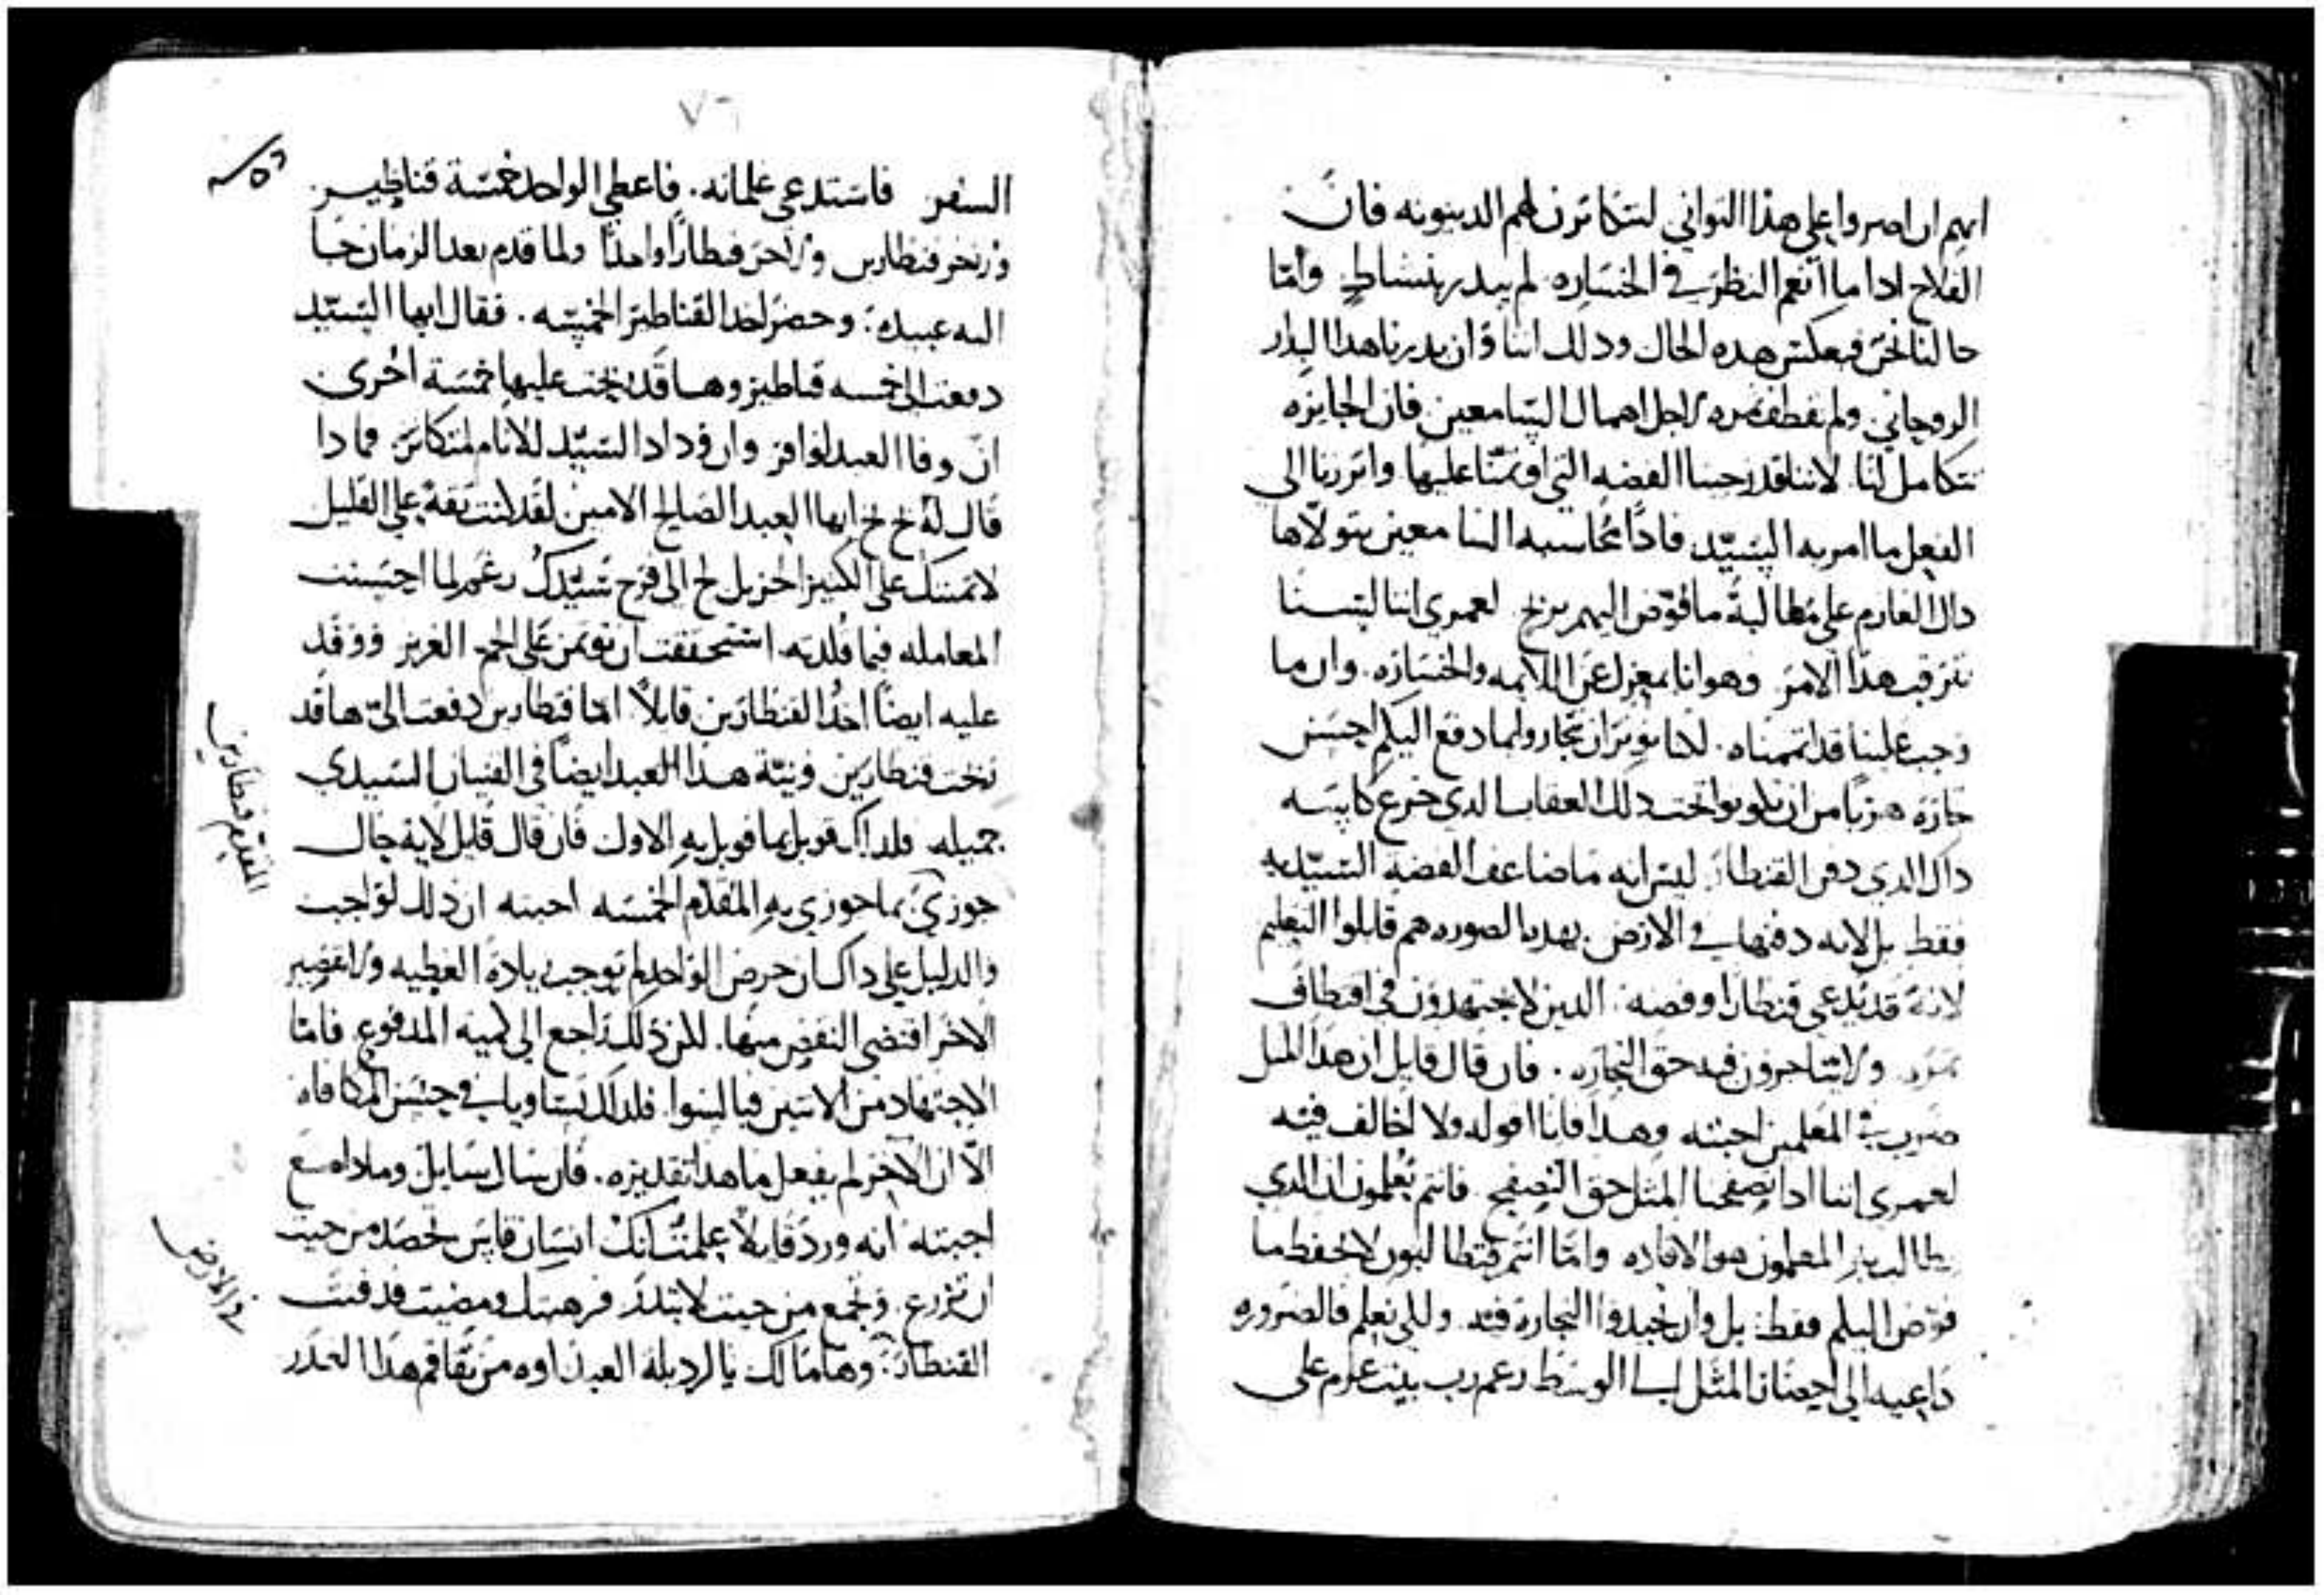 انهم ان اصروا علي هذا التواني لتتكاثرن لهم الدينونه فان
الفلاح اذا ما انعم النظر في الخساره لم يبدر بنشاط وامّا
حالنا نحن فبعكس هده الحال ودلك اننا وان بدرنا هدا البدار
الروحاني ولم نقطف ثمره لاجل اهمال السامعين فان الجايزه
تتكامل لنا. لاننا قد رحينا الفضه التي اوتمنّا عليها وابرزنا الي
الفعل ما امر به السيّد فادًا محاسبه السامعين يتولاها
داك الغارم علي مطالبة ما فوّض اليهم بربح لعمري اننا لسنا
نترقب هذا الامر وهو انا بمعزل عن اللايمه والخساره. وان ما
وجب علينا قد اتممناه. لكنا نوثر ان تحاروا لما دفع اليكم احسن
حازه هربًا من ان تكونوا تحت دلك العقاب الدي خرع كاسه
داك الدي دفن القنطار ليس انه ما ضاعف الفضه السيّديه
فقط بل لانه دفنها في الارض بهده الصوره هم قابلوا التعليم
لانه قد يدعي قنطارا وفضه. الدين لا يجتهدون في اقتطاف
ثمره ولا يتاجرون فيه حق التجاره. فان قال قايل ان هدا المثل
ضرب في المعلمين اجبته وهدا فانا اقوله ولا اخالف فيه
لعمري اننا ادا تصفحنا المثل حق التصفح فانتم تعلمون ان الدي
يطالب به المعلمون هو الافاده وامّا انتم فتطالبون لا بحفظ ما
فوّض اليكم فقط بل وان تجيدوا التجارة فيه. ولكي نعلم فالضروره
داعيه الي احضار المثل الي الوسط زعم رب بيت عزم علي
٧٦
السفر فاستدعي غلمانه. فاعطي الواحد خمسة قناطير
ولاخر قنطارين ولاخر قنطارًا واحدًا ولما قدم بعد الزمان جا
اليه عبيده: وحضر اخد القناطير الخمسه. فقال ايها السيّد
دفعت الي خمسه قناطير وها قد ربحت عليها خمسة اخري
انّ وفا العبد لوافر وان وداد السيّد للانام لمتكاثر فما دا
قال له نخ نخ ايها العبد الصالح الامين لقد كنت ثقة علي القليل
لاتمننك علي الكثير الجزيل لج الي فرح سيّدك زعم لما احسنت
المعامله فيما قلدته استحققت ان توتمن علي الجم الغزير ووفد
عليه ايضًا اخد القنطارين قايلا امّا قنطارين دفعت اليّ ها قد
ربحت قنطارين ونيّة هدا العبد ايضًا في القنيان السيدي
جميله فلداك قوبل بما قوبل به الاول فان قال قايل لاية حال
جوزي بما جوزي به المقدّم الخمسه اجبته ان دلك لواجب
والدليل علي داك ان حرص الواحد لم توجب زيادة العطيه ولا تقصير
الاخر اقتضي النقص منها. لكن دلك راجع الي كميه المدفوع. فامّا
الاجتهاد من الاتنين فبالسوا. فلدلك تساويا في جنس المكافاه
الّا ان الاخر لم يفعل ما هدا تقديره. فان سال سايل وما دا صنع
اجبته انه ورد قايلًا علمت انك انسان قاس تحصد من حيث
لم تزرع وتجمع من حيث لا تبدر فرهبتك ومضيت فدفنت
القنطار: وها مالك يا لردىلة العبد اوه من تفاقم هدا الغدر
المقدّم قنطارين
في الارض